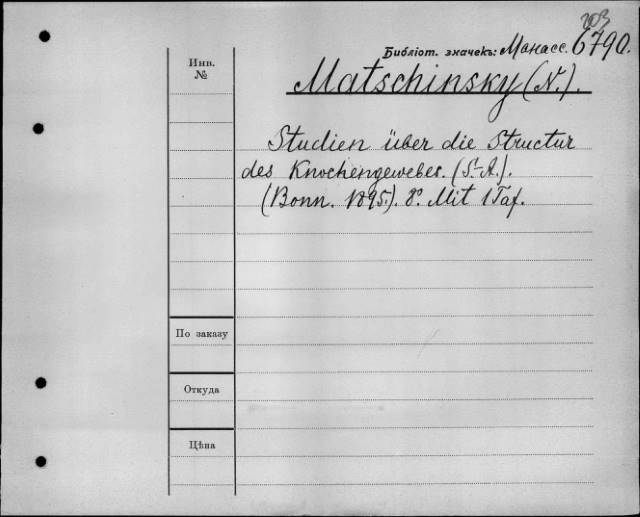 203
Библіот. значекъ: Манасс. 6790.
Инв.
№
Matschinsky (N.).
Studien über die Structur
des Knochengewebes. (S.-A.).
(Bonn. 1895.). 8º. Mit 1 Taf.
По заказу
Откуда
Цѣна